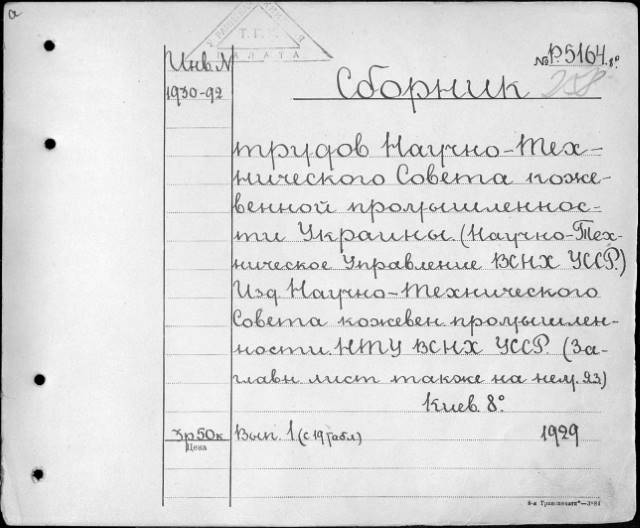 а
Т.П.
ПАЛАТА
Инв. №
1930-92
№ Р.5164.8°
258
Сборник
трудов Научно-Тех-
нического Совета коже-
венной промышленнос-
ти Украины. (Научно-Тех-
ническое Управление ВСНХ УССР.)
Изд. Научно-Технического
Совета кожевен. промышлен-
ности. НТУ ВСНХ УССР. (За-
главн. лист также на нем. яз.)
Киев. 8°.
3р50к
Цена
Вып. 1 (с 19 табл.)
1929